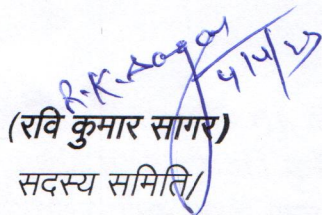 R.K.Sagar
4/4/23
(रवि कुमार सागर)
सदस्य समिति/